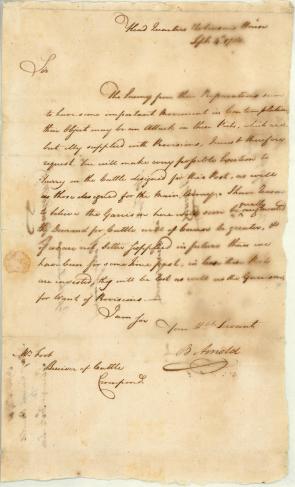 Head Quarters Robinsons House
Sept. 4th 1780
Sir
The Enemy from their Preparations seem
to have some important Movement in Contemplation
their Object may be an Attack on these Posts, which are
but illy supplied with Provisions, I must therefore
request you will make every possible Exertion to
hurry on the Cattle designed for this Post, as well
as those designed for the Main Army. I have reason
to believe the Garrison here will soon be greatly reinforced
the Demand for Cattle will of Course be greater, &
if we are not better supplied in future than we
have been for some time past, in Case these Posts
are invested, they will be lost as well as the Garrison
for Want of Provisions.
I am Sir
Your Hble Servant
B. Arnold
Mr.
Receiver of Cattle
Crompond.